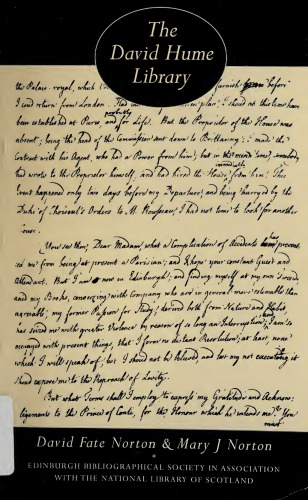 The
David Hume
Library
the Palais-royal, which furnish before
I cou'd return from London. Had plan, I shou'd at this time, have
been establishd at Paris, probably and for Life. But the Proprietor of the House was
absent; being the head of the Commission sent down to Brittany: I made the
Contract with his Agent, who had a Power from him; but in somebody
had wrote to the Proprietor himself, and had hired the House from him. This
Event happened only two days before my Departure; and being hurryed by the
Duke of Orders to M. Rousseau, I had not time to look for another
House.
You see then, Dear Madam, what a Complication of Accidents has prevent-
ed me from being at present a Parisian; and I hope your constant Guest and
Attendant. But I am now in Edinburgh; and finding myself at my own Fireside,
and my Books, conversing with Company who are in general more than
my former Passion for Study, derived both from Nature and Habit,
has seized me with greater Violence by reason of so long an Interruption,
occupyed with present things, that I form no distant Resolution; at least, none
which I will speak of; lest I should not be believed, and lest my not executing it
shoud expose me to the Reproach of Levity.
But what Terms shall I employ to express my Gratitude and Acknow-
legements to the Prince of Conti, for the Honour which he intends me? You
must
David Fate Norton & Mary J Norton
EDINBURGH BIBLIOGRAPHICAL SOCIETY IN ASSOCIATION
WITH THE NATIONAL LIBRARY OF SCOTLAND